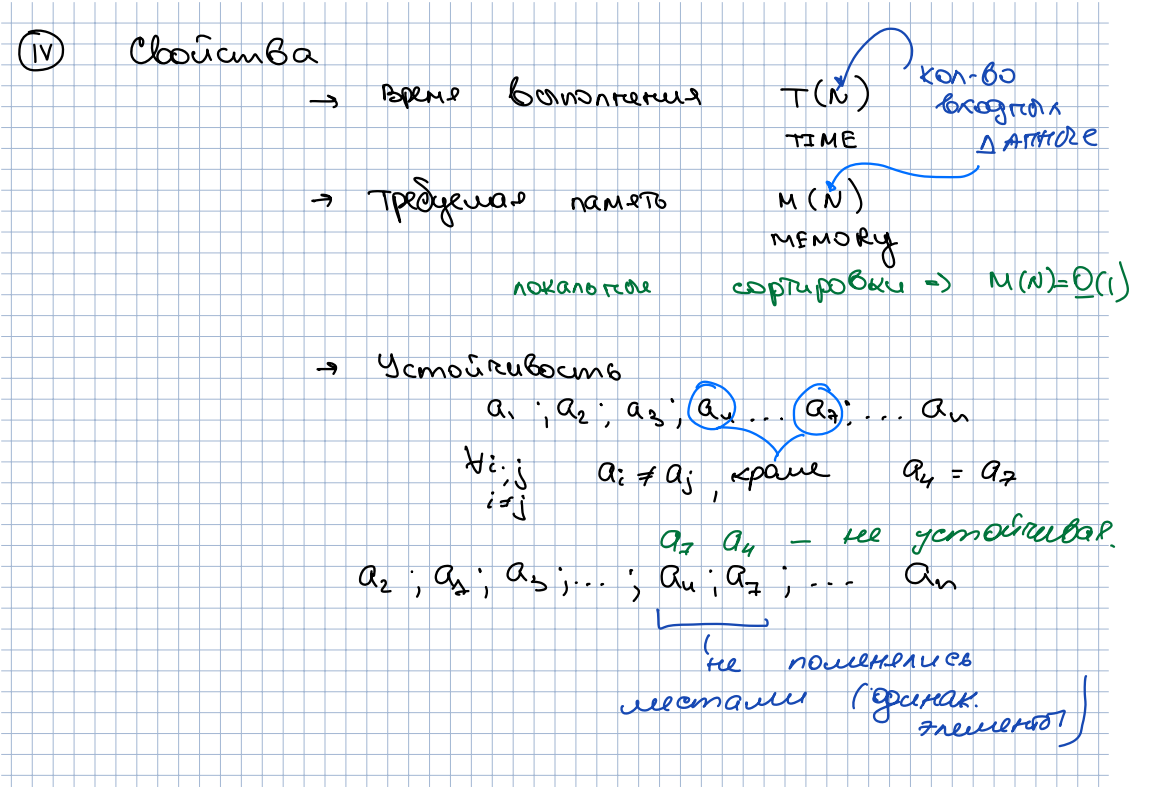 IV Свойства
→ время выполнения T(N) кол-во
входных
TIME данные
→ требуемая память M(N)
MEMORY
локальные сортировки => M(N)=O(1)
→ Устойчивость
a₁ ; a₂ ; a₃ ; a₄ ... a₇ ; ... aₙ
∀i,j aᵢ ≠ aⱼ , кроме a₄ = a₇
i≠j
a₇ a₄ — не устойчивая.
a₂ ; a₁ ; a₃ ; ... ; a₄ ; a₇ ; ... aₙ
не поменялись
местами (одинак.
элементы)